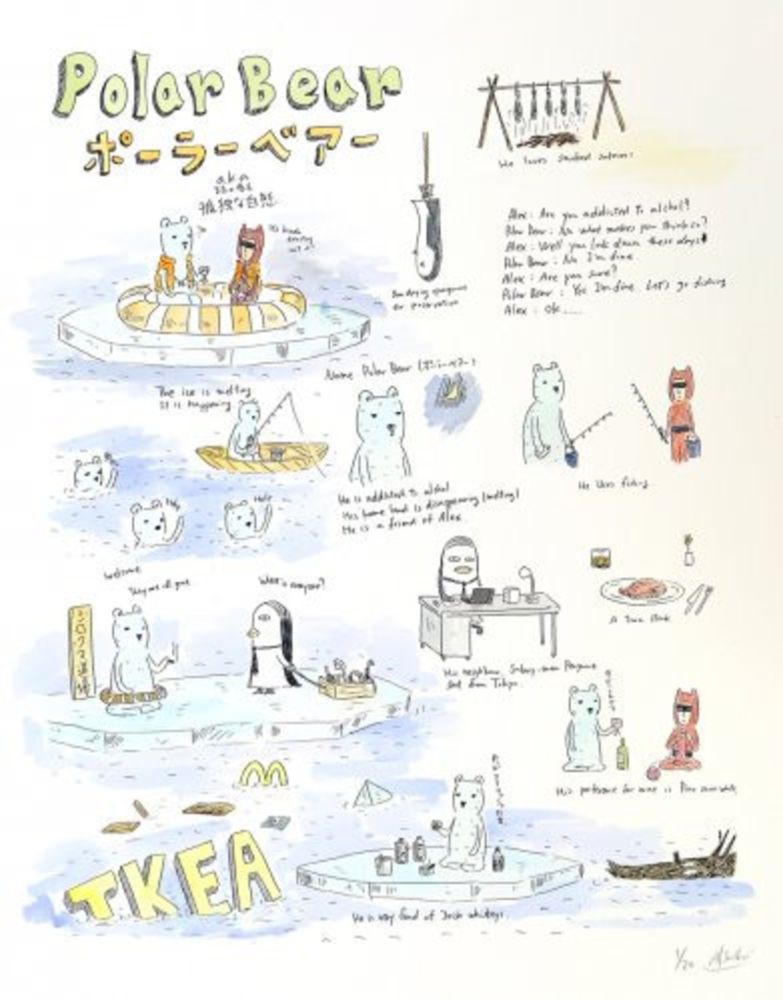 Polar Bear
ポーラーベアー
aka
孤独な自然
He loves smoked salmon.
Alex: Are you addicted to alchol?
Polar Bear: No what makes you think so?
Alex: Well you look down these days
Polar Bear: No I'm fine
Alex: Are you sure?
Polar Bear: Yes I'm fine. Let's go fishing
Alex: Ok.....
for preservation
Name Polar Bear (ポーラーベアー)
The ice is melting
It is happening
Help
Help
He is addicted to alchol
His home land is disappearing (melting)
He is a friend of Alex
He likes fishing
Welcome
They are all gone
Where is everyone?
シロクマ道場
A Tuna Steak
His neighbour, Salary-man Penguin
from Tokyo.
His preference for wine is
TKEA
He is very fond of Irish whiskeys.
1/20